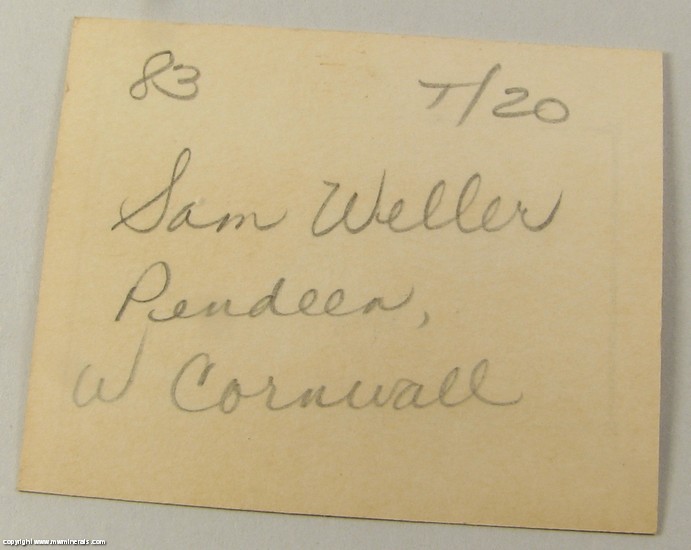 83 T/20
Sam Weller
Pendeen,
W Cornwall
copyright www.mwminerals.com